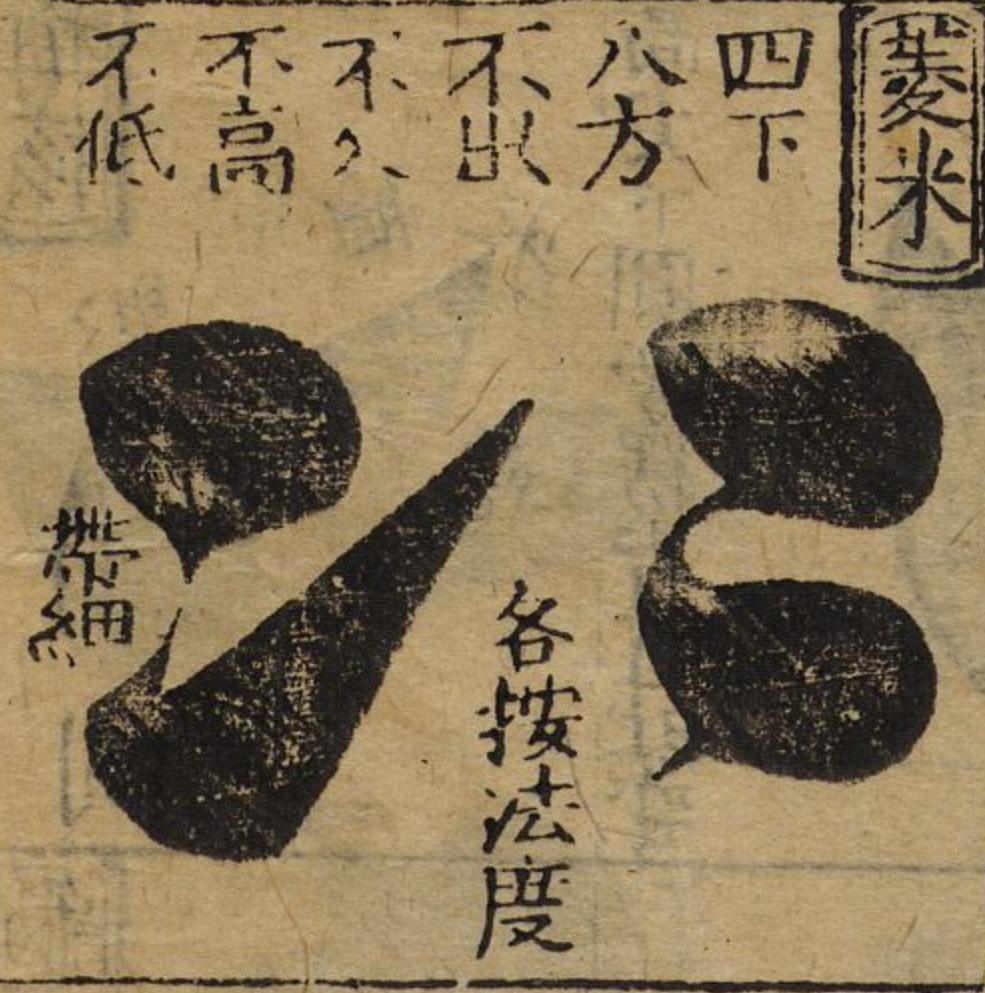 菱米
四下
八方
不出
不久
不高
不低
各按法度
帶細